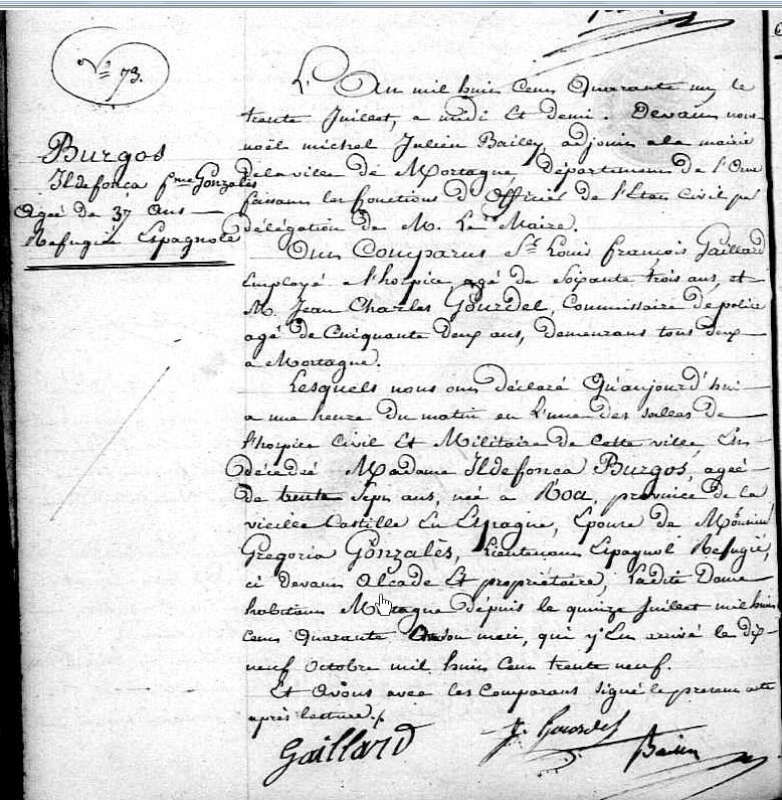 N° 73.
Burgos
Ildefonca fme Gonzalès
Ageé de 37 ans
Refugiée Espagnole
L'An mil huit cent Quarante un, le
trente Juillet, a midi et demi. Devant nous
noël michel Julien Bailly, adjoint a la mairie
de la ville de Mortagne, département de l'Orne
faisant les fonctions d'Officier de l'Etat Civil par
délégation de M. Le Maire.
Ont Comparus Sr Louis françois Gaillard
Employé a l'hospice, agé de soixante trois ans, et
M. Jean Charles Gourdel, Commissaire de police
agé de Cinquante deux ans, demeurans tous deux
a Mortagne.
Lesquels nous ont déclaré Qu'aujourd'hui
a une heure du matin en l'une des salles de
l'hospice Civil Et Militaire de Cette ville, Est
décédeé Madame Ildefonca Burgos, ageé
de trente sept ans, neé a Roa, province de la
vieille Castille En Espagne, Epouse de Monsieur
Gregoria Gonzalès, Lieutenant Espagnol Refugié,
ci devant Alcade Et propriétaire, Ladite Dame
habitant Mortagne depuis le quinze Juillet mil huit
cent Quarante son mari, qui y Est arrivé le dix-
neuf octobre mil huit cent trente neuf.
Et avons avec les Comparans signé le present acte
après lecture./.
Gaillard
J. Gourdel